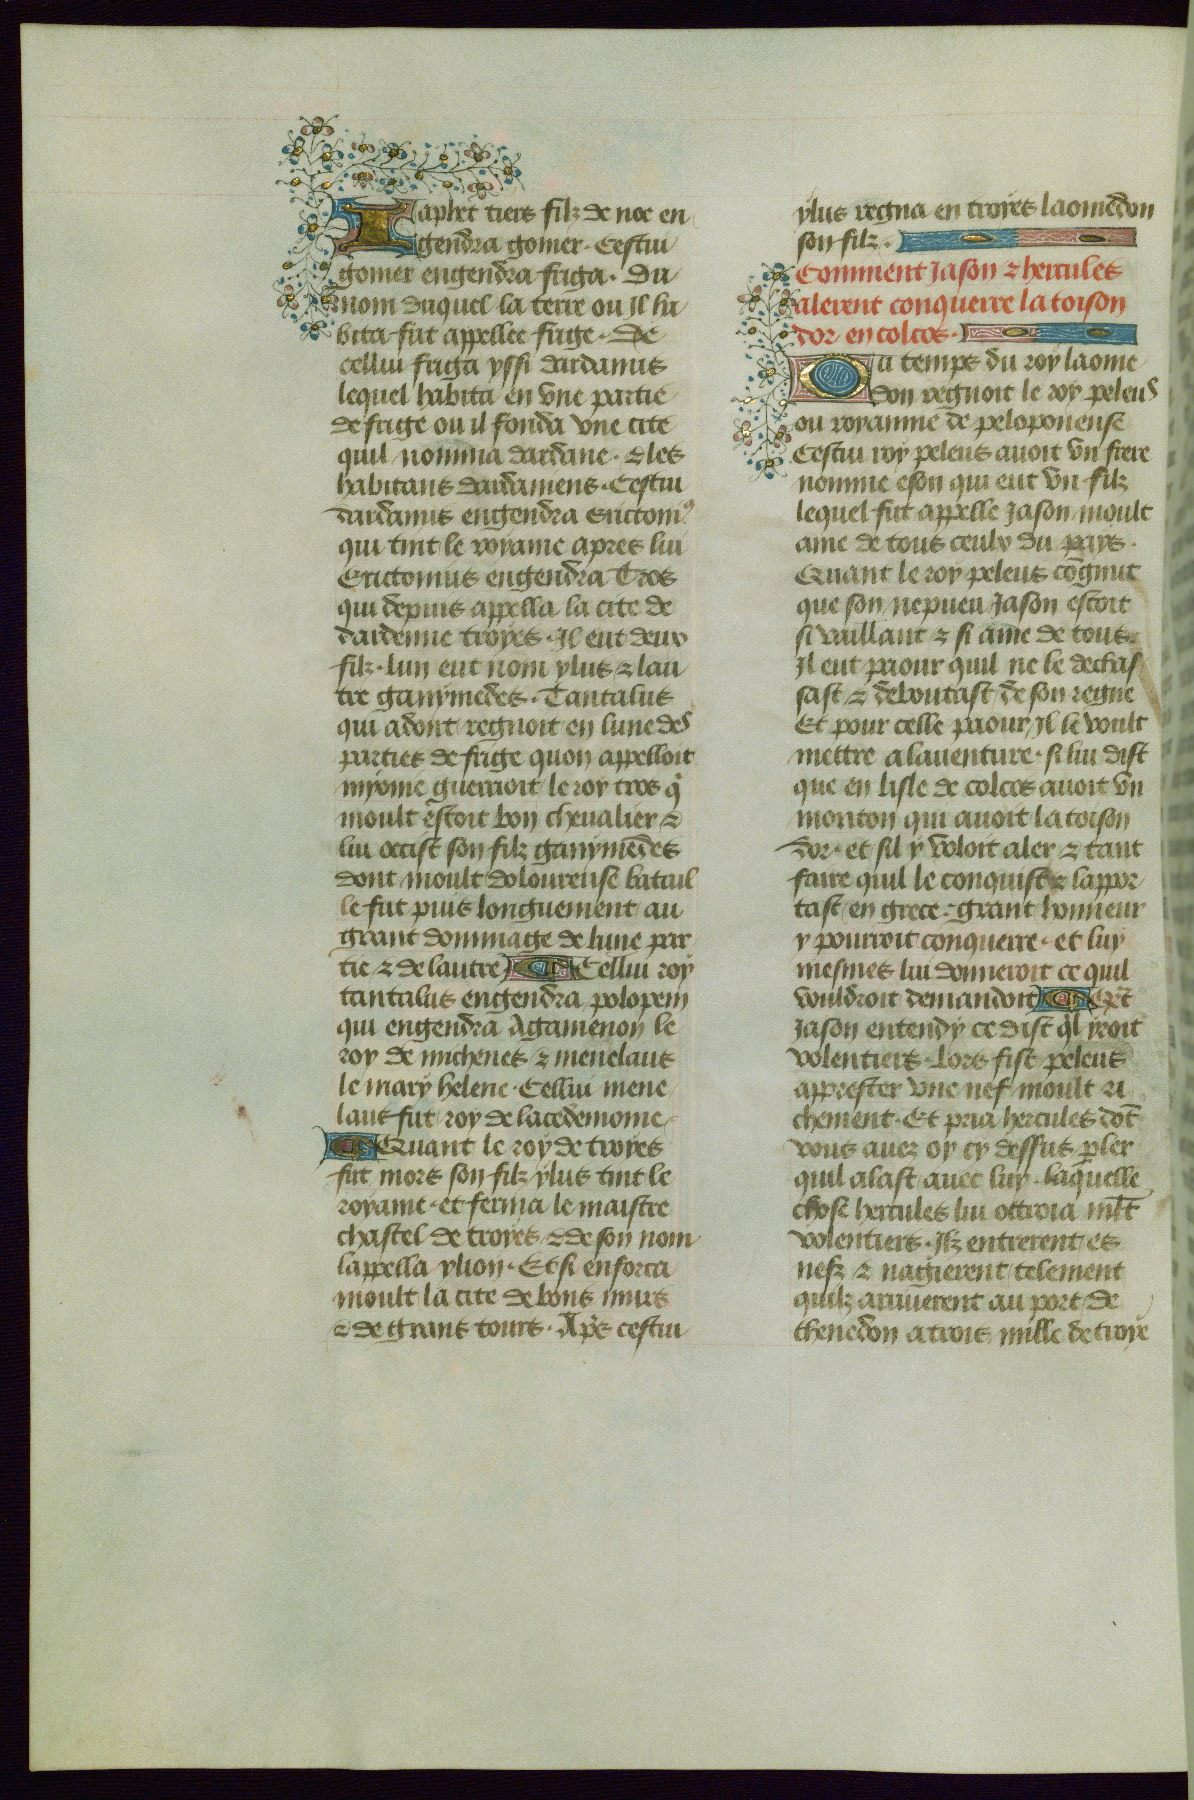 Japhet tiers filz de noe en
gendra gomer. Cestui
gomer engendra friga. Du
nom duquel la terre ou il ha
bita fut appellee frige. De
cellui friga yssi dardanus
lequel habita en vne partie
de frige ou il fonda vne cite
quil nomma dardane. & les
habitans dardaniens. Cestui
dardanus engendra erictoniꝰ
qui tint le royame apres lui
Erictonius engendra Tros
qui depuis appella la cite de
dardenne troyes. Il eut deux
filz. lun eut nom ylus & lau
tre ganymedes. Tantalus
qui adont regnoit en lune des
parties de frige quon appelloit
myome guerrioit le roy tros q̃
moult estoit bon cheualier &
lui occist son filz ganymedes
dont moult doloureuse batail
le fut puis longuement au
grant dommage de lune par
tie & de lautre Cellui roy
tantalus engendra polopem
qui engendra Agamenon le
roy de michenes & menelaus
le mary helene. Cellui mene
laus fut roy de lacedemome
Quant le roy de troyes
fut mors son filz ylus tint le
royame. et ferma le maistre
chastel de troyes. & de son nom
lappella ylion. Et si enforca
moult la cite de bons murs
& de grans tours. Ap̃s cestui
ylus regna en troyes laomedon
son filz.
Comment Jason & hercules
alerent conquerre la toison
dor en colcos.
Du temps du roy laome
don regnoit le roy peleus
ou royaume de peloponense
Cestui roy peleus auoit vn frere
nomme eson qui eut vn filz
lequel fut appelle Jason moult
ame de tous ceulx du pays.
Quant le roy peleus cõgnut
que son nepueu Jason estoit
si vaillant & si ame de tous.
Il eut paour quil ne le dechas
sast & deboutast de son regne
Et pour celle paour Il le voult
mettre a lauenture. si lui dist
que en lisle de colcos auoit vn
monton qui auoit la toison
dor. et sil y voloit aler & tant
faire quil le conquist & lappor
tast en grece. grant honneur
y pourroit conquerre. et luy
mesmes lui donneroit ce quil
vouldroit demandoit Q̃nt
Jason entendy ce dist q̃l yroit
volentiers. Lors fist peleus
apprester vne nef moult ri
chement. Et pria hercules dõt
vous auez oy cy dessus p̱ler
quil alast auec luy. Laquelle
chose hercules lui ottroia ml̃t
volentiers. Ilz entrerent es
nefz & nagierent telement
quilz arriuerent au port de
thenedon a trois mille de troye